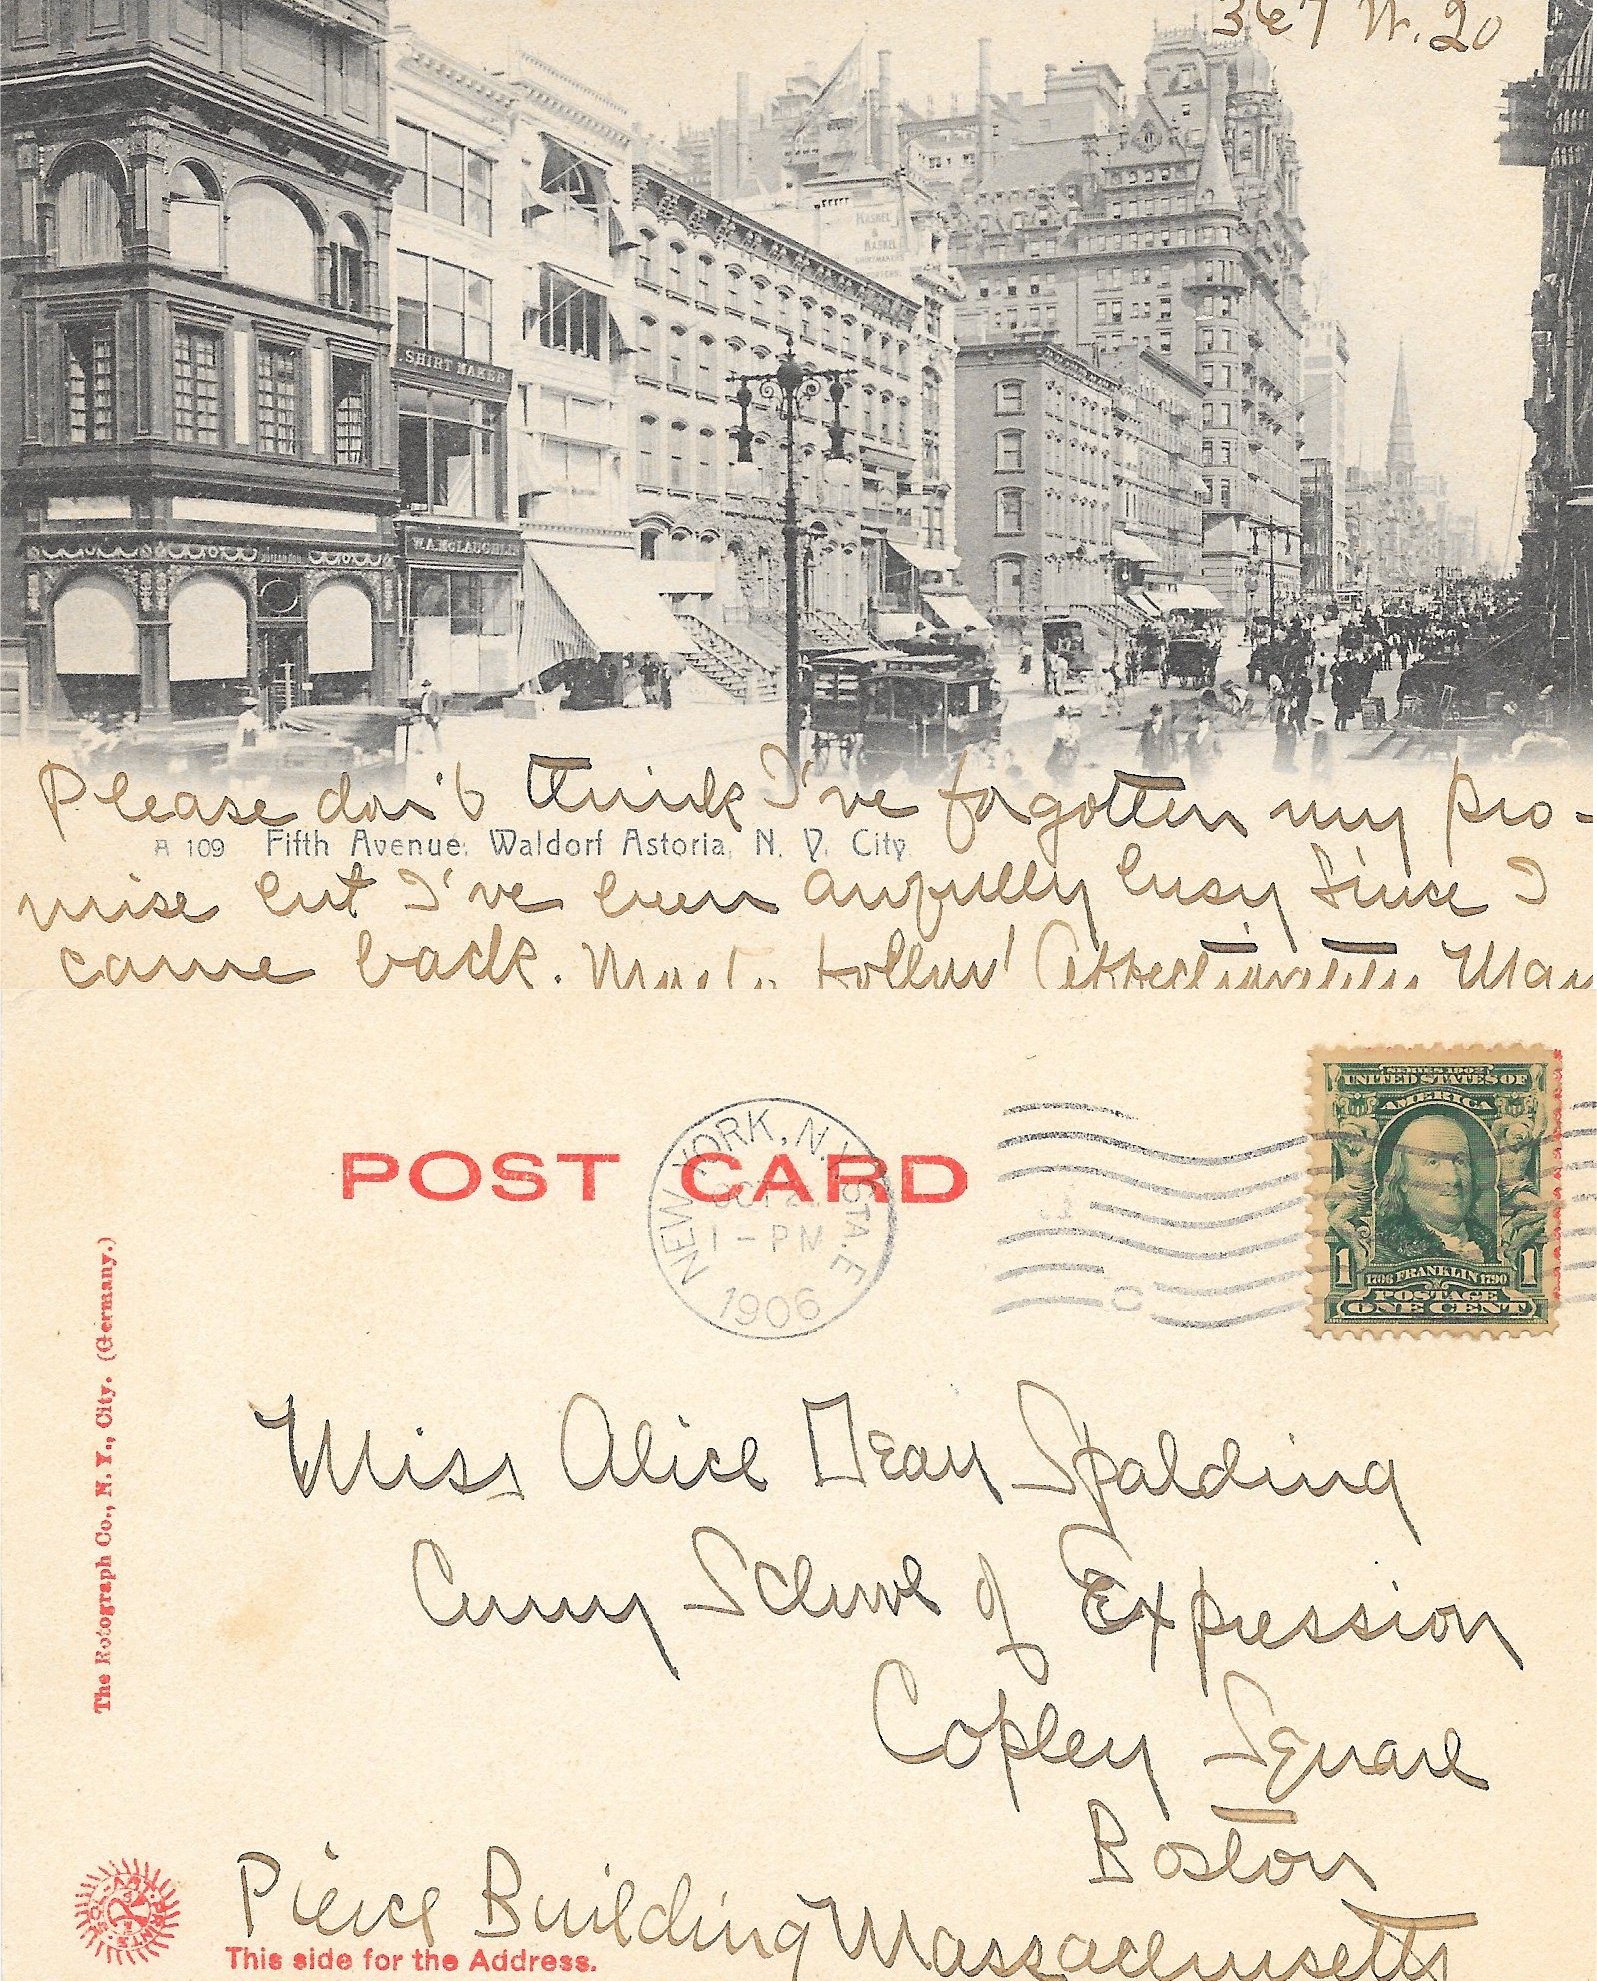 367 W. 20
HASKEL
&
HASKEL
SHIRTMAKERS
SHIRT MAKER
W.A. McLAUGHLIN
Please don't think I've forgotten my pro-
A 109 Fifth Avenue, Waldorf Astoria, N. Y. City.
mise but I've been awfully busy since I
came back. Affectionately May
POST CARD
NEW YORK, N.Y. STA. E
OCT
1-PM
1906
SERIES 1902
UNITED STATES OF
AMERICA
1 1706 FRANKLIN 1790 1
POSTAGE
ONE CENT
The Rotograph Co., N. Y., City. (Germany.)
Miss Alice Dean Spalding
Curry School of Expression
Copley Square
Boston
Pierce Building Massachusetts
This side for the Address.